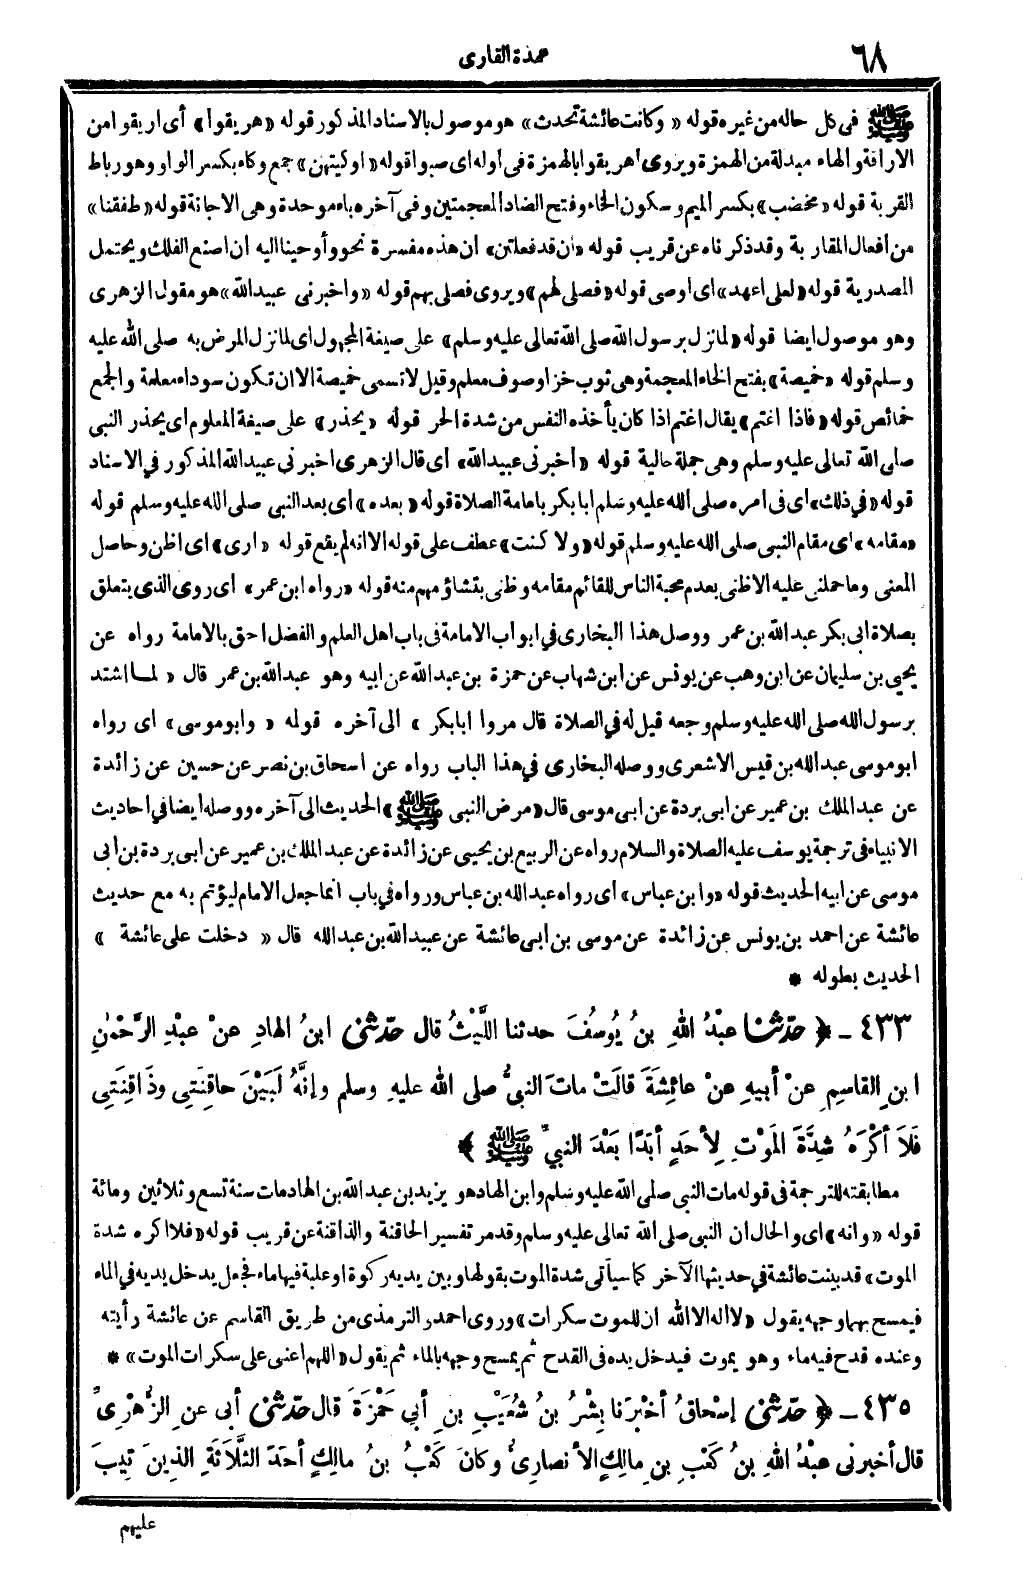 ٦٨
عمدة القارى
ﷺ فى كل حاله من غيره قوله «وكانت عائشة تحدث» هو موصول بالاسناد المذكور قوله «هريقوا» أى اريقوا من
الاراقة والهاء مبدلة من الهمزة ويروى اهريقوا بالهمزة فى اوله اى صبوا قوله «اوكيتهن» جمع وكاء بكسر الواو وهو رباط
القربة قوله «مخضب» بكسر الميم وسكون الخاء وفتح الضاد المعجمتين وفى آخره باء موحدة وهى الاجانة قوله «طفقنا»
من افعال المقاربة وقد ذكرناه عن قريب قوله «ان قد فعلتن» ان هذه مفسرة نحو وأوحينا اليه ان اصنع الفلك ويحتمل
المصدرية قوله «لعلى اعهد» اى اوصى قوله «فصلى لهم» ويروى فصلى بهم قوله «واخبرنى عبيدالله» هو مقول الزهرى
وهو موصول ايضا قوله «لما نزل برسول الله صلى الله تعالى عليه وسلم» على صيغة المجهول اى لما نزل المرض به صلى الله عليه
وسلم قوله «خميصة» بفتح الخاء المعجمة وهى ثوب خز او صوف معلم وقيل لا تسمى خميصة الا ان تكون سوداء معلمة والجمع
خمائص قوله «فاذا اغتم» يقال اغتم اذا كان يأخذه النفس من شدة الحر قوله «يحذر» على صيغة المعلوم اى يحذر النبى
صلى الله تعالى عليه وسلم وهى جملة حالية قوله «أخبرنى عبيدالله» أى قال الزهرى اخبرنى عبيدالله المذكور فى الاسناد
قوله «فى ذلك» اى فى امره صلى الله عليه وسلم ابا بكر بامامة الصلاة قوله «بعده» اى بعد النبى صلى الله عليه وسلم قوله
«مقامه» اى مقام النبى صلى الله عليه وسلم قوله «ولا كنت» عطف على قوله الا انه لم يقع قوله «ارى» اى اظن وحاصل
المعنى وما حملنى عليه الا ظنى بعدم محبة الناس للقائم مقامه وظنى بتشاؤمهم منه قوله «رواه ابن عمر» اى روى الذى يتعلق
بصلاة ابى بكر عبدالله بن عمر ووصل هذا البخارى فى ابواب الامامة فى باب اهل العلم والفضل احق بالامامة رواه عن
يحيى بن سليمان عن ابن وهب عن يونس عن ابن شهاب عن حمزة بن عبدالله عن ابيه وهو عبدالله بن عمر قال «لما اشتد
برسول الله صلى الله عليه وسلم وجعه قيل له فى الصلاة قال مروا ابابكر» الى آخره قوله «وابوموسى» اى رواه
ابوموسى عبدالله بن قيس الاشعرى ووصله البخارى فى هذا الباب رواه عن اسحاق بن نصر عن حسين عن زائدة
عن عبدالملك بن عمير عن ابى بردة عن ابى موسى قال «مرض النبى ﷺ» الحديث الى آخره ووصله ايضا فى احاديث
الانبياء فى ترجمة يوسف عليه الصلاة والسلام رواه عن الربيع بن يحيى عن زائدة عن عبدالملك بن عمير عن ابى بردة بن ابى
موسى عن ابيه الحديث قوله «وابن عباس» أى رواه عبدالله بن عباس ورواه فى باب انما جعل الامام ليؤتم به مع حديث
عائشة عن احمد بن يونس عن زائدة عن موسى بن ابى عائشة عن عبيدالله بن عبدالله قال «دخلت على عائشة»
الحديث بطوله *
٤٣٣ ـ ﴿ حدّثنا عبْدُ اللهِ بنُ يُوسُفَ حدثنا اللَّيْثُ قال حدّثنى ابنُ الهادِ عنْ عبْدِ الرَّحْمٰنِ
ابنِ القاسِمِ عنْ أبيهِ عنْ عائِشَةَ قالَتْ ماتَ النبيُّ صلى الله عليهِ وسلم وإنَّهُ لَبَيْنَ حاقِنَتِي وذَاقِنَتِي
فَلاَ أكْرَهُ شِدَّةَ المَوْتِ لِأحَدٍ أبَدًا بَعْدَ النبيِّ ﷺ ﴾
مطابقته للترجمة فى قوله مات النبى صلى الله عليه وسلم وابن الهاد هو يزيد بن عبدالله بن الهاد مات سنة تسع وثلاثين ومائة
قوله «وانه» اى والحال ان النبى صلى الله تعالى عليه وسلم وقد مر تفسير الحاقنة والذاقنة عن قريب قوله «فلا اكره شدة
الموت» قد بينت عائشة فى حديثها الآخر كما سيأتى شدة الموت بقولها وبين يديه ركوة او علبة فيها ماء فجعل يدخل يديه فى الماء
فيمسح بهما وجهه يقول «لا اله الا الله ان للموت سكرات» وروى احمد والترمذى من طريق القاسم عن عائشة رأيته
وعنده قدح فيه ماء وهو يموت فيدخل يده فى القدح ثم يمسح وجهه بالماء ثم يقول «اللهم اعنى على سكرات الموت» *
٤٣٥ ـ ﴿ حدّثنى إسْحاقُ أخْبرَنا بِشْرُ بنُ شُعَيْبِ بنِ أبي حَمْزَةَ قال حدّثنى أبى عنِ الزُّهْرِىِّ
قال أخبرنى عبْدُ اللهِ بنُ كَعْبِ بنِ مالِكٍ الأنصارِىُّ وكانَ كَعْبُ بنُ مالِكٍ أحَدَ الثَّلاَثَةِ الذِينَ تِيبَ
عليهم